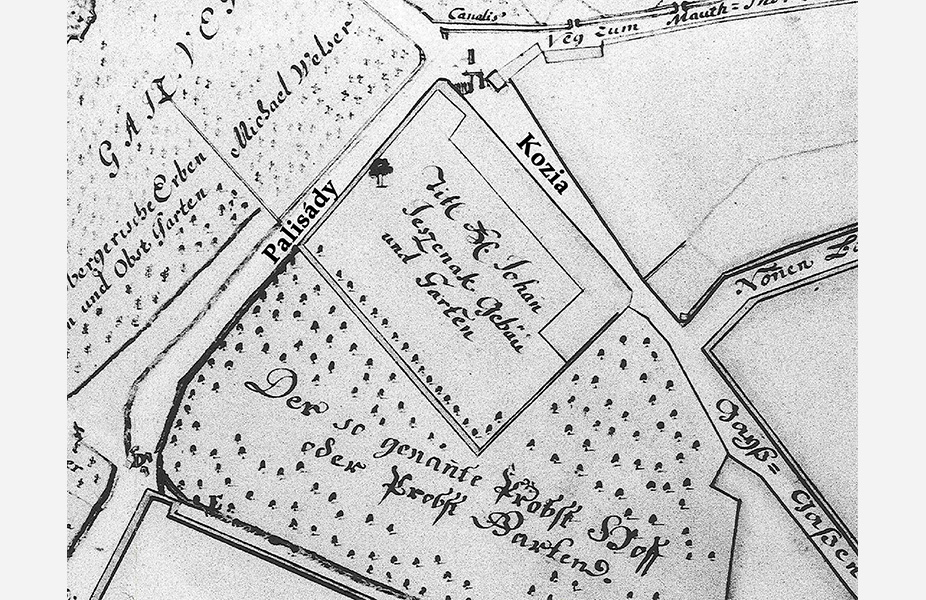 Canalis
Veg zum Mauth=
GAI
Michael Welser
bergerische Erben
und Obst Garten
Palisády
Kozia
Titl H: Johan
Jeszenak Gebäu
und Garten
Noñen
Der so genañte Probst Hoff
oder Probst Garten
Ganß=
Gaßen
er